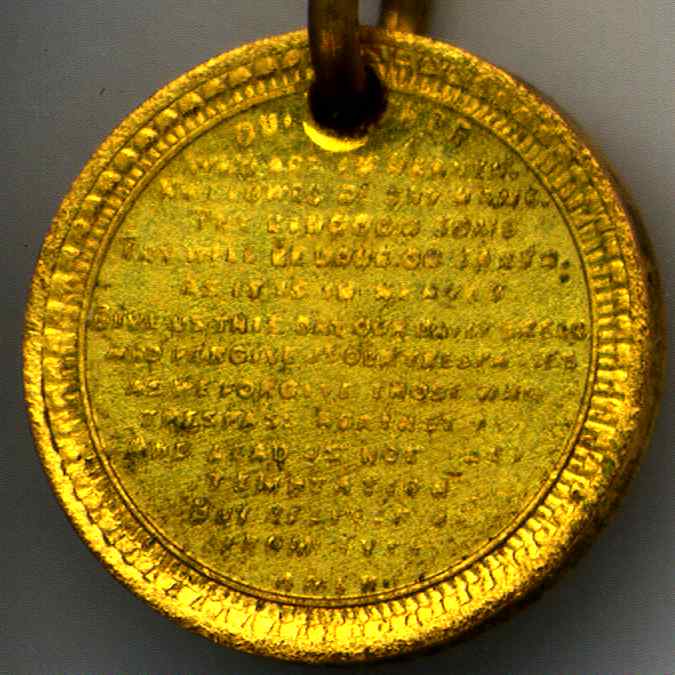 OUR
ART IN HEAVEN.
HALLOWED BE THY NAME.
THY KINGDOM COME
THY WILL BE DONE ON EARTH.
AS IT IS IN HEAVEN
GIVE US THIS DAY OUR DAILY BREAD
AND FORGIVE US OUR TRESPASSES
AS WE FORGIVE THOSE WHO
TRESPASS AGAINST
AND LEAD US NOT INTO
TEMPTATION
BUT DELIVER
FROM EVIL
AMEN